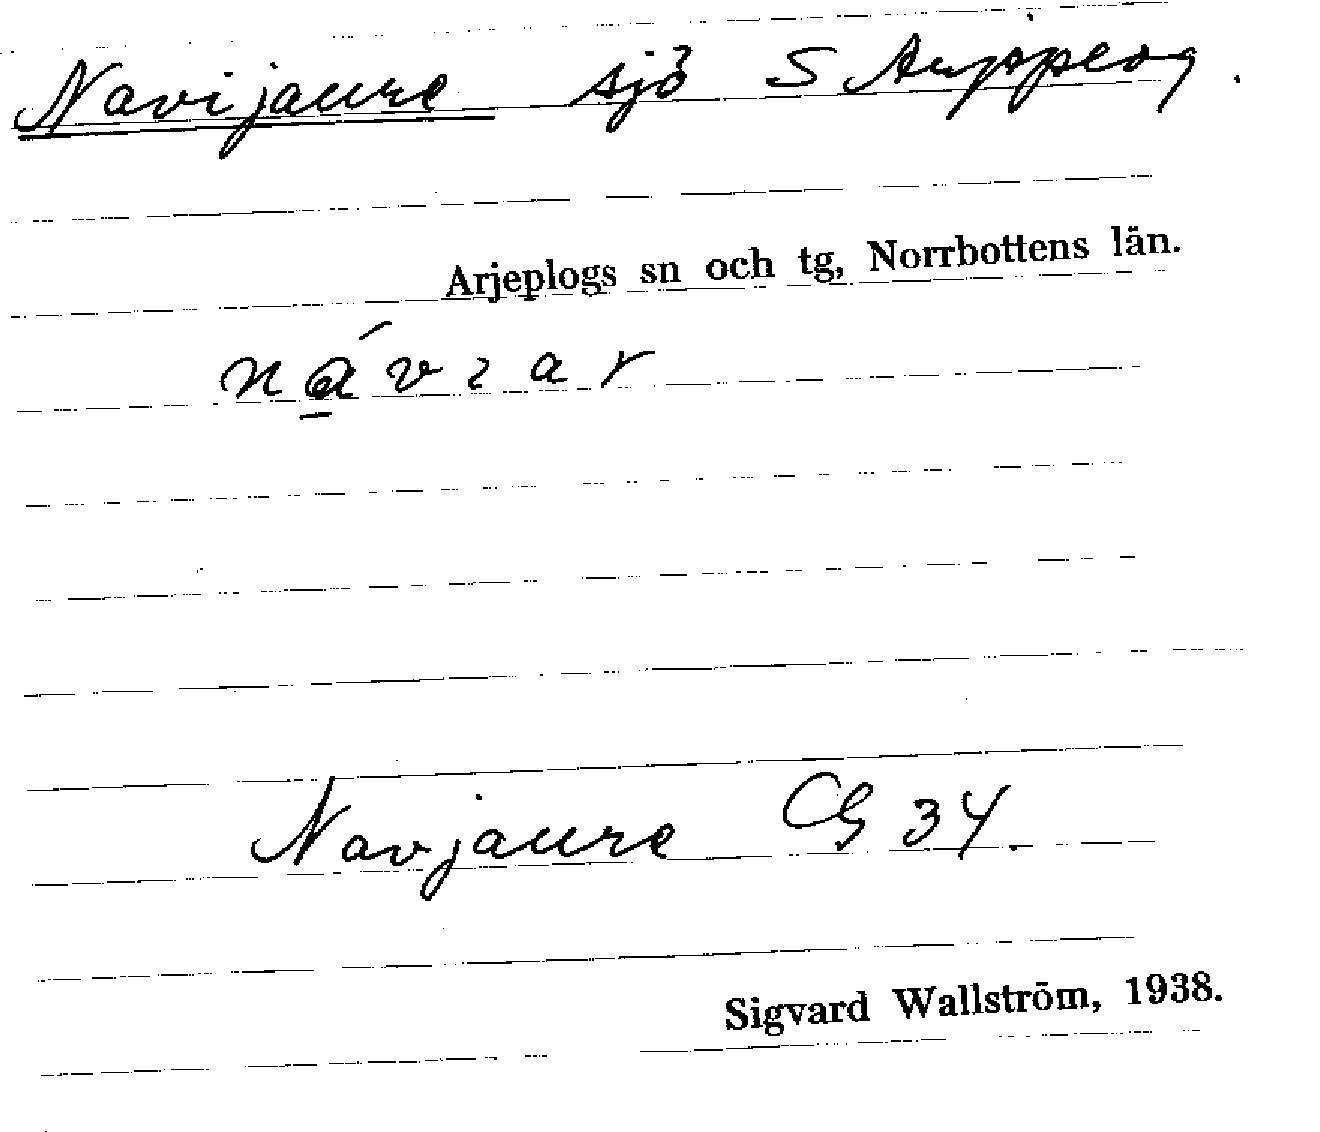 Navijaure sjö S Arjeplog.
Arjeplogs sn och tg, Norrbottens län.
Navjaure CG 34.
Sigvard Wallström, 1938.